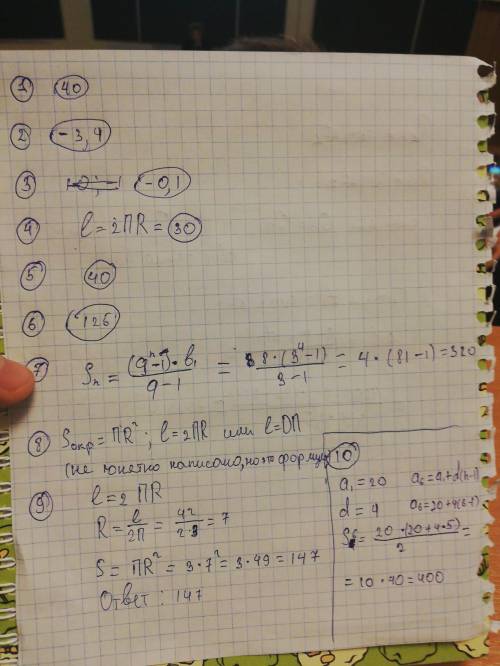 1 40
2 -3,4
3 -0,1
4 l = 2ПR = 30
5 40
6 126
7 Sₙ = (qⁿ-1)·b₁ / q-1 = 8·(3⁴-1) / 3-1 = 4·(81-1) = 320
8 Sокр = ПR²; l = 2ПR или l = DП
(не понятно написано, но это формулы)
9 l = 2ПR
R = l / 2П = 42 / 2·3 = 7
S = ПR² = 3·7² = 3·49 = 147
Ответ: 147
10
a₁ = 20 a₆ = a₁+d(n-1)
d = 4 a₆ = 20+4(6-1)
S = 20·(20+4·5) / 2 =
= 10·40 = 400